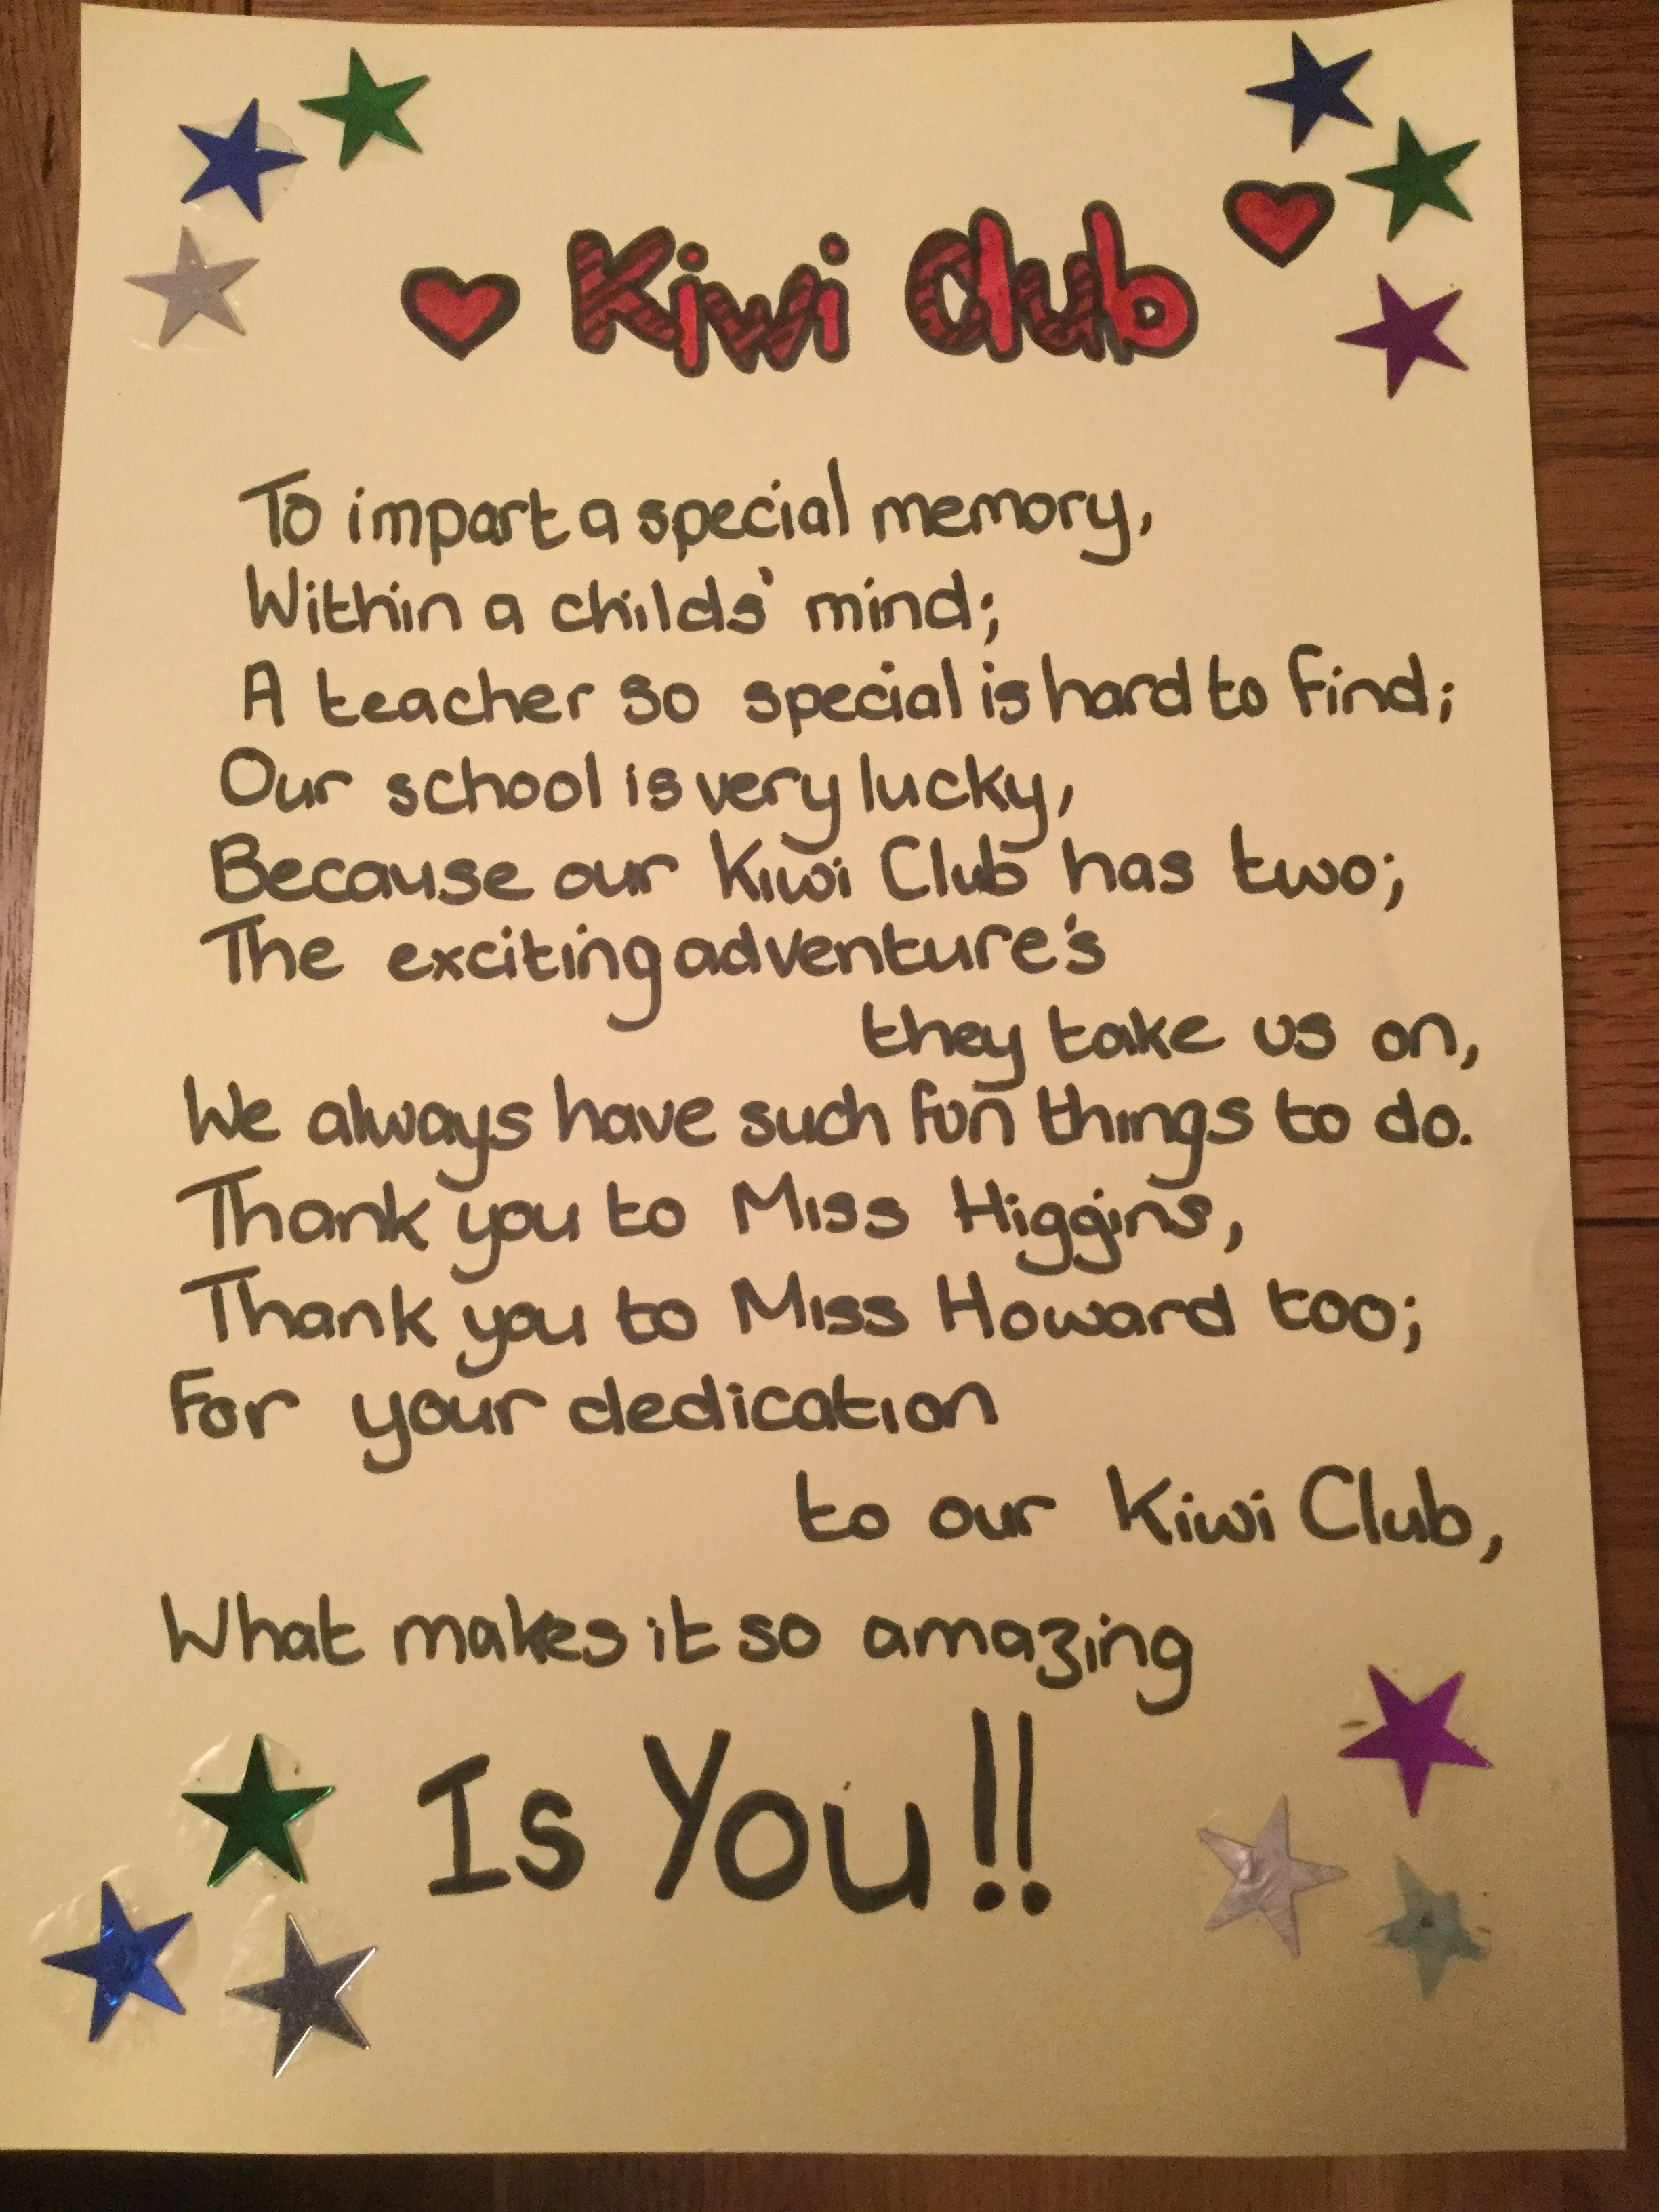 Kiwi Club
To impart a special memory,
Within a childs' mind;
A teacher so special is hard to find;
Our school is very lucky,
Because our Kiwi Club has two;
The exciting adventure's
they take us on,
We always have such fun things to do.
Thank you to Miss Higgins,
Thank you to Miss Howard too;
For your dedication
to our Kiwi Club,
What makes it so amazing
Is You!!